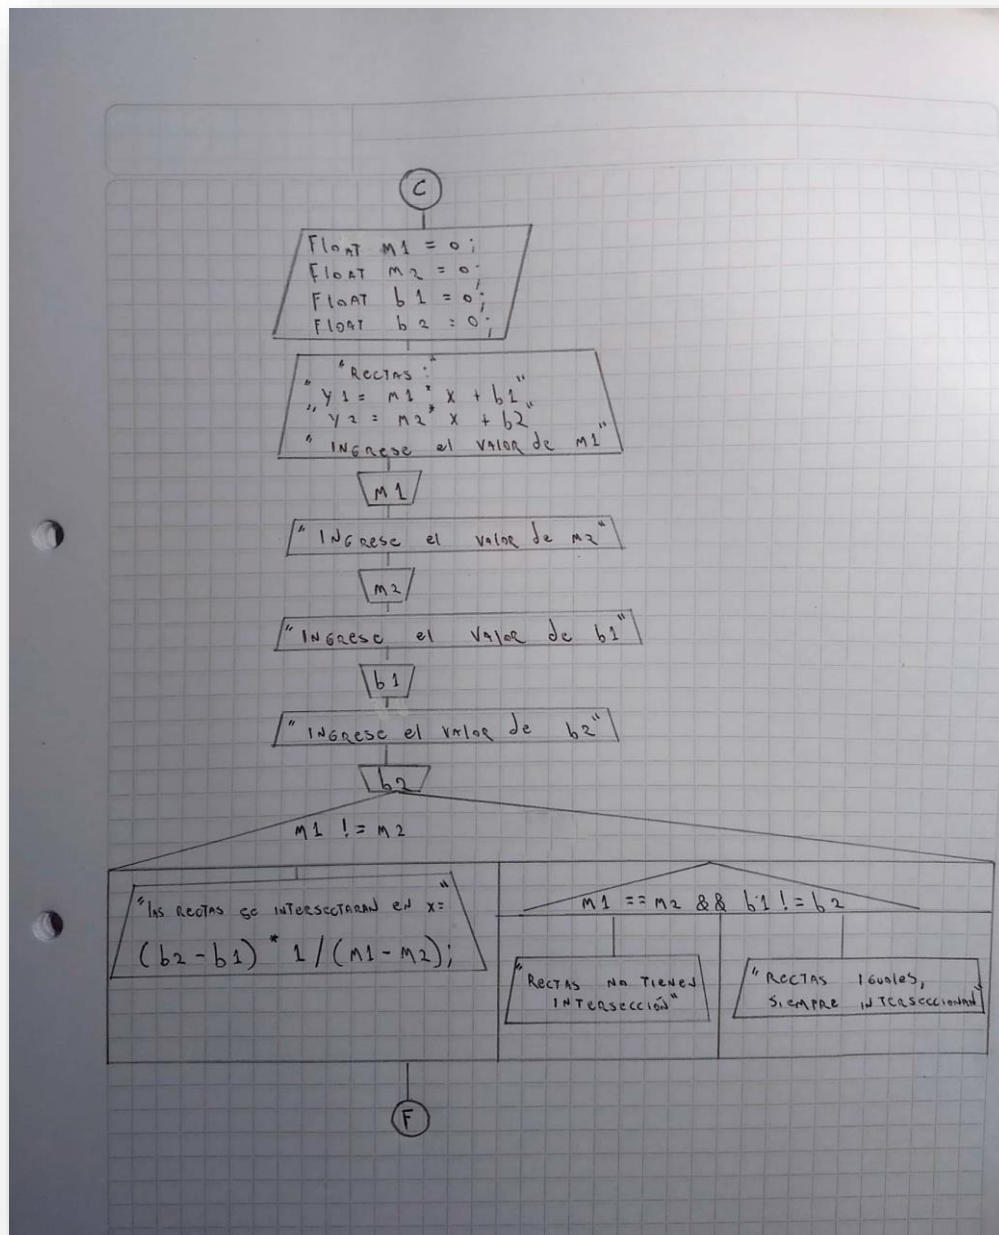 C
Float m1 = 0;
Float m2 = 0;
Float b1 = 0;
Float b2 = 0;
"Rectas:"
"Y1 = m1 * x + b1"
"Y2 = m2 * x + b2"
"Ingrese el valor de m1"
m1
"Ingrese el valor de m2"
m2
"Ingrese el valor de b1"
b1
"Ingrese el valor de b2"
b2
m1 != m2
"las rectas se intersectaran en x="
(b2-b1) * 1/(m1-m2);
m1 == m2 && b1 != b2
"Rectas no tienen
intersección"
"Rectas iguales,
siempre interseccionan
F